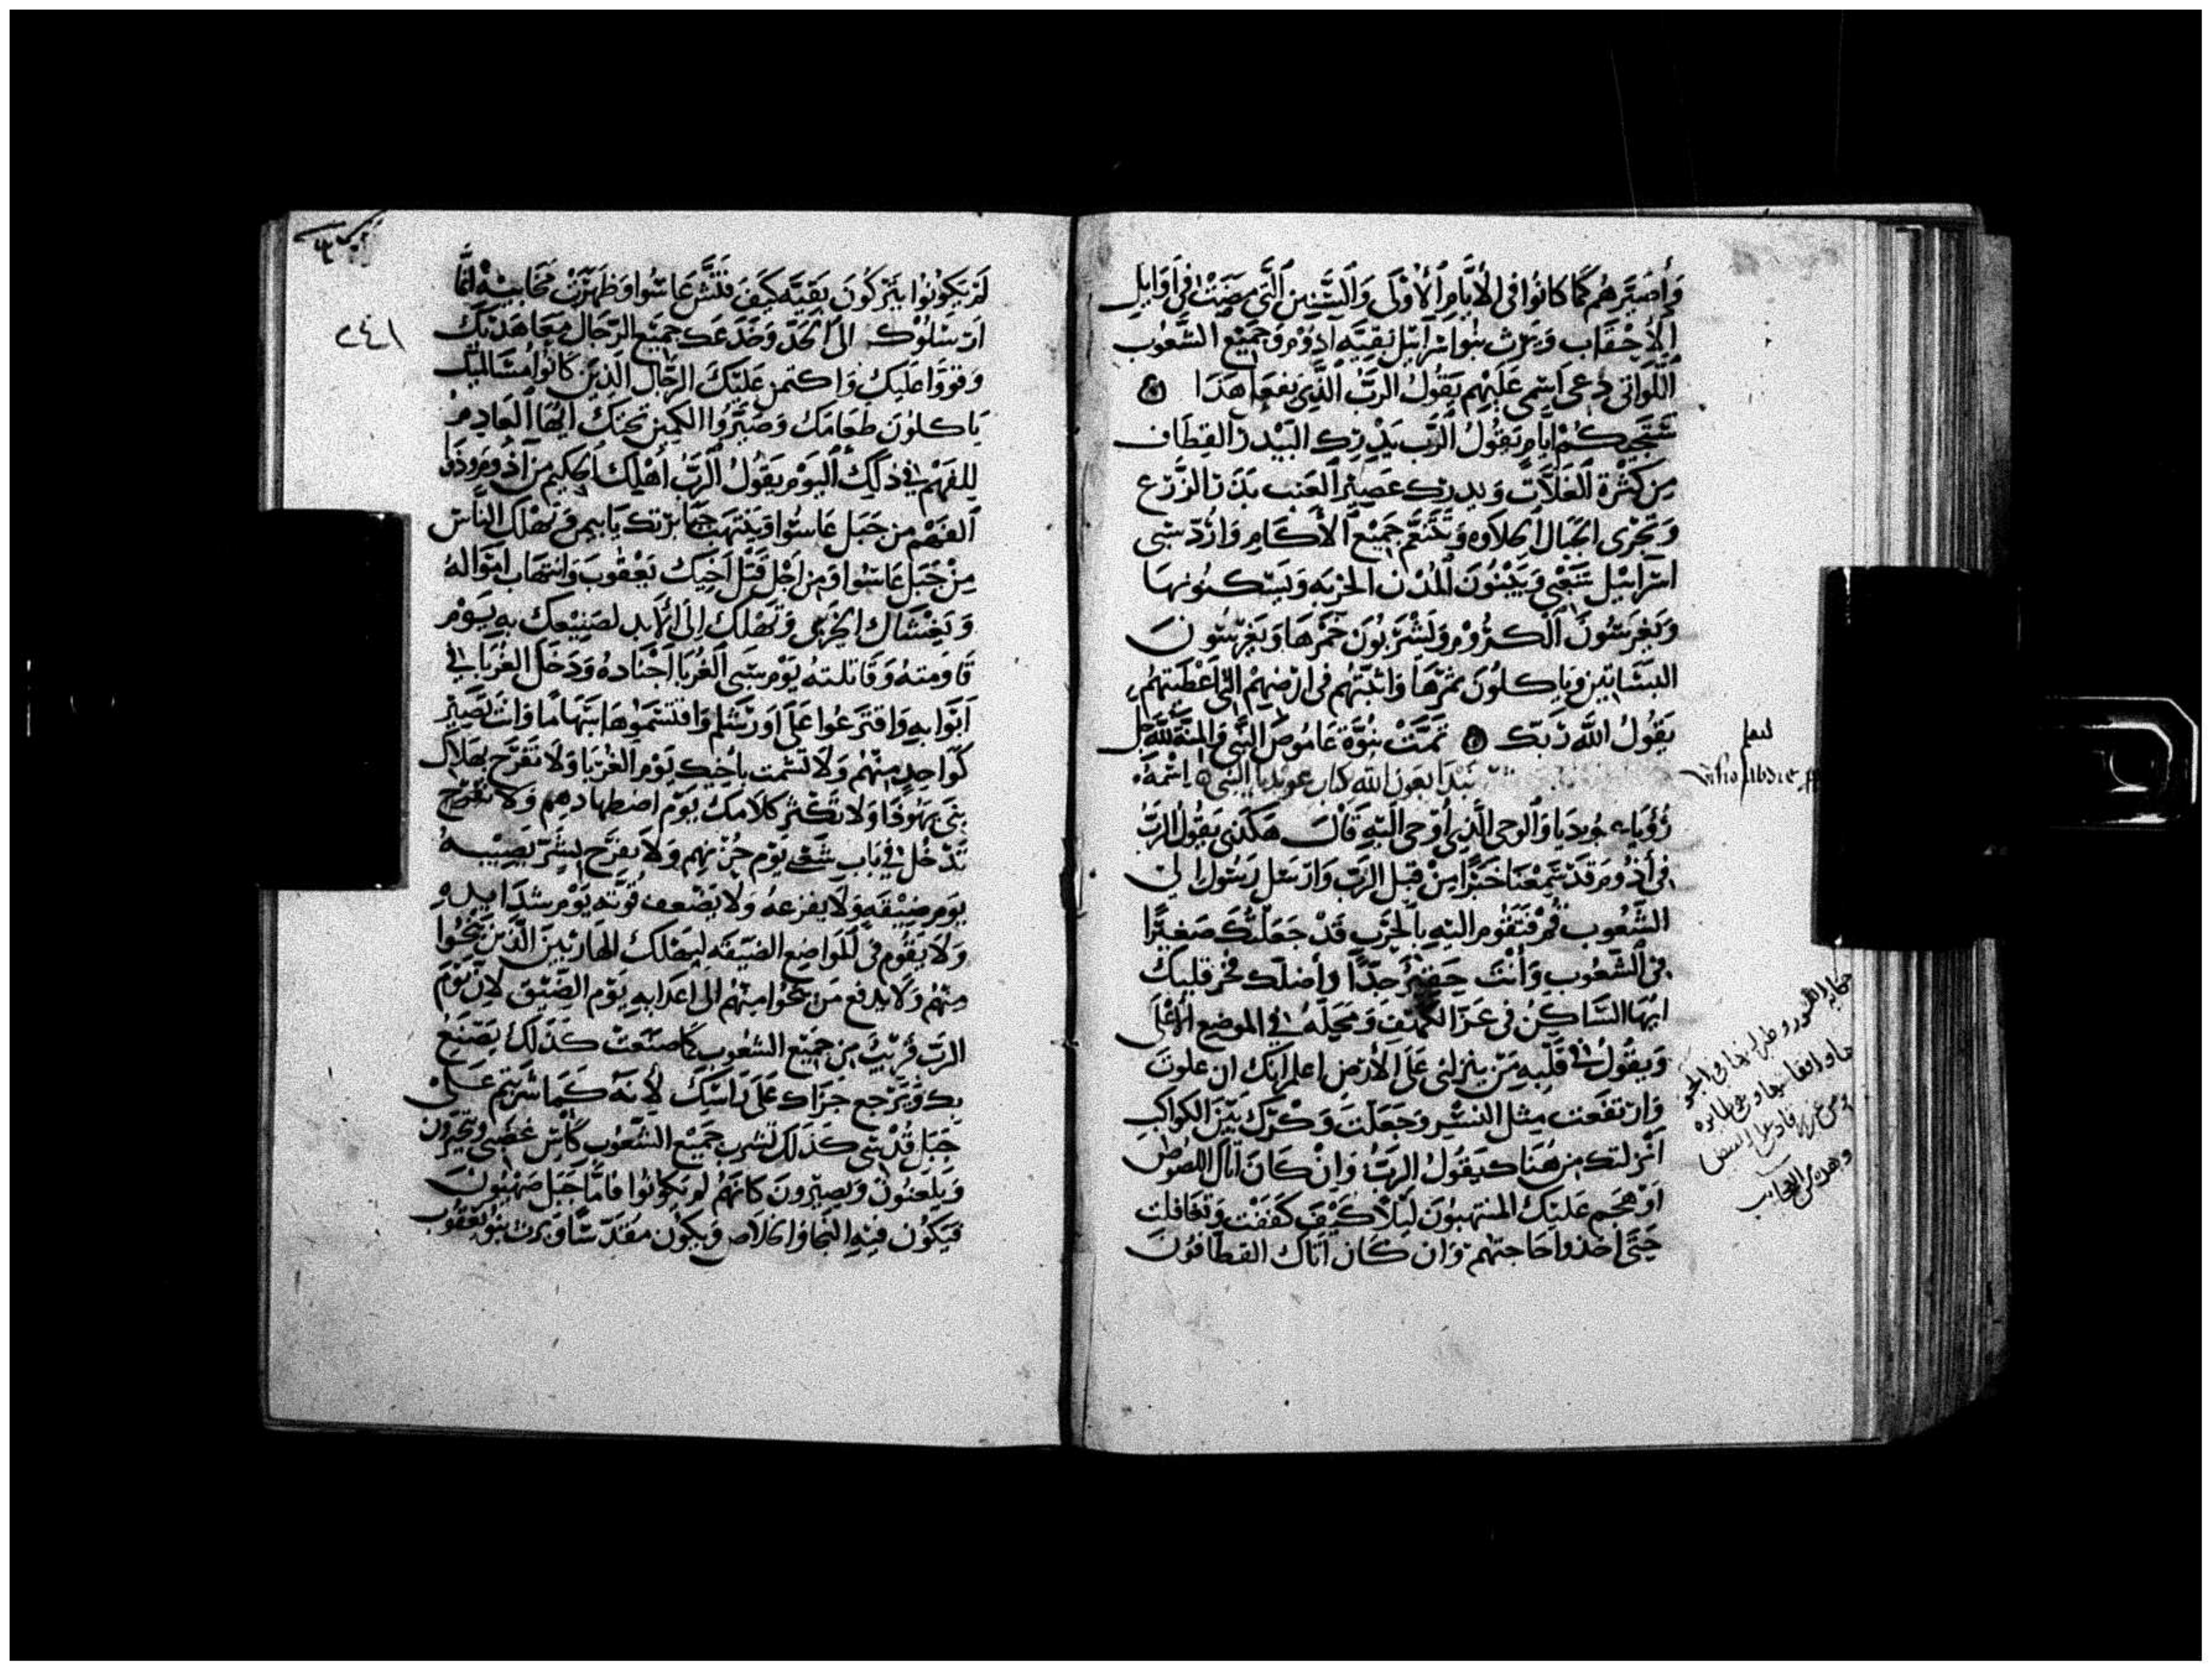 وَأُصَيِّرهُم كَمَا كانُوا في الأيَّامِ الأُوْلَى وَالسِّنين الَّتي مضت في أوَايل
الأحْقَاب وَيَرث بنوا اسْرَآئيل بَقيَّه ادُوْم وَجَميْع الشعُوب
اللَّواتي دعى اسْمى عَلَيْهم يَقُولُ الربُّ الَّذي يَفعَل هَذا
سَتَجيكُمْ أيام يَقُولُ الرَّب يَدْرك البَيْدر القطَاف
مِن كَثْرة الغَلَاَّت وَيدرك عَصيْر العنب بَذر الزَّرْع
وَتَجْرى الجبَال الحلاَوه وَتَنْعَّم جَميْع الأكَام وَاَرُدّ سَبى
اسْرَآئيل شَعْبي وَيَبْنُونَ المُدن الخربَه وَيَسكنُونها
وَيَغرسُونَ الكرُوْم وَيَشْرَبُونَ خَمْرهَا وَيَغرسُونَ
البسَاتين وَيَاكلُونَ ثمَرْها وَاثبتهُم فى ارْضهُم التى اعْطَيتهُم
يَقُولُ الله رَبك تَمَّتْ نبُوَّة عَامُوصْ النَّبي وَالمنَّة لله
نَبْدَا بعَون الله كتاب عوبديا النبي
رُؤيَاء عُوبديَا وَالوحى الَّذي أُوْحى اليْهِ قَالَ هَكَذى يَقُول الربُّ
في أذوم قَدْ سَمعْنَا خَبَرًا من قبل الرَّب وَارْسَل رَسُولا الى
الشعُوب قُمْ فَنَقُوم اليْه بالحَرْب قَدْ جَعَلْتُكَ صَغيْرًا
في الشعُوب وَأنْتَ حَقيْرٌ جدًّا وَأضلَّك فخر قلبك
ايُّهَا السَّاكن في عَرَا الكَهْف وَمحَلّه في الموضع الأعْلَى
وَيقُولُ في قلْبهِ مَنْ ينزلنى عَلَى الأرْض اعلم انَّك ان علوت
وَارْتفَعت مثل النسْر وَجَعَلْتَ وَكْرَك بَيْنَ الكواكب
أنزلتك من هُنَاك يَقُولُ الربُّ وَانْ كَانَ اتاك اللصُوص
اوْ هجَم عَليْك المنتهبُون لَيْلاً كيْفَ كفَفْت وَتغَافلت
حَتَّى اخذُوا حَاجتهُم وَان كَان اتَاك القطَافُون
لَمْ يَكُونُوا يَتركُونَ بَقيَّه كيفَ فتَّش عَاسُوا وَظهَرَتْ مخَابيْه
ارْسَلُوْك الى الحَدّ وَخدَعَك جَميْع الرّجَال معَاهَديْك
وَقووا عَليْك وَاكتمن عَليْكَ الرجَال الذيْن كَانُوا مسَالميْك
يَاكلُونَ طَعَامَك وَصَيَّرُوا الكمين تحتك ايُّهَا العَادم
للفهم في ذلِكَ اليَوْم يَقُولُ الرَّبُّ أهْلك الحكيم من آذُوم وَذوى
الفهْم من جَبَل عَاسُوا وَيَنتهب جبَابرتك يَا تيمن وَيهلك النَّاس
مِنْ جَبَل عَاسُوا وَمن اجْل قَتْل أخيك يَعْقُوبَ وَانتهَاب امْوَاله
وَيَغشَاك الخزى وَتهلك إلى الأبد لصَنيْعك به يَوْم
قَاوَمته وَقَاتلته يَوْم سَبَى الغُربَا اجْنَادهُ وَدَخلَ الغُرَبَا في
ابْوَابهِ وَاقترَعُوا عَلَى اورشَلم وَاقتسَمُوهَا سهَامًا وَانت تَصيْر
كوَاحِد منْهُم وَلا تَشمت باخيك يَوْم الغرَبَا وَلا تَفْرَح بهَلاَك
بَنى يَهُوذا وَلا تكثر كلامك يَوْم اضطهادهم وَلا
تَدْخُل في بَاب شَعْبى يَوْم حُزنهم وَلا يَفرَح بشَرّ يَصيْبه
يَوم ضيقه وَلا يفزعهُ وَلا يَضْعف قُوّته يَوْم شدايده
وَلا يَقُوم في المَوَاضع الضيقه ليهلك الهَاربيْن الَّذين نَجوا
منْهُم وَلا يدفع مَن نجوا منْهُم الى اعدايه يَوْم الضيق لان يَوْم
الربّ قريْبٌ من جَميْع الشعُوب كمَا صنَعتْ كذلك يصنع
بك وَيَرجع جَزَاك عَلَى رَاسك لأنه كمَا شربتم عَلَى
جَبَل قُدْسى كذَلك تَشرب جَميْع الشعُوب كَأس غضَبى
وَيلعنُون وَيصيْرون كانهُم لم يكُونُوا فامَّا جَبَل صَهْيُون
فيكُون فيه النجَا وَالخلاَص وَيكُون مقدَّسًا وَيَرث بنُو يَعْقُوب
٢٤١